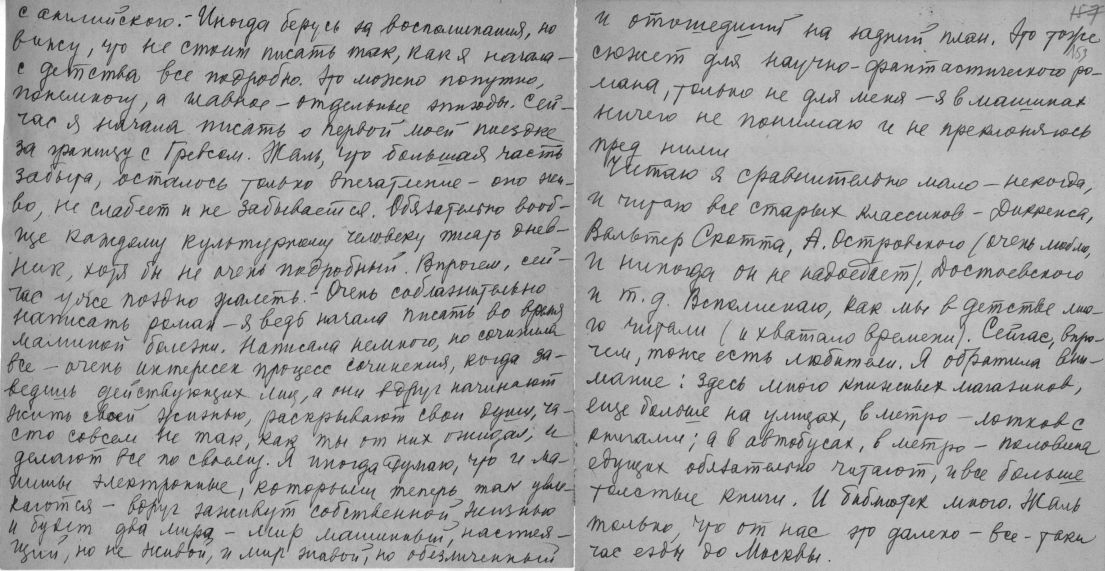 с английского. – Иногда берусь за воспоминания, но
вижу, что не стоит писать так, как я начала –
с детства все подробно. Это можно попутно,
понемногу, а главное – отдельные эпизоды. Сей-
час я начала писать о первой моей поездке
за границу с Гревсом. Жаль, что большая часть
забыта, осталось только впечатление – оно жи-
во, не слабеет и не забывается. Обязательно вооб-
ще каждому культурному человеку писать днев-
ник, хотя бы не очень подробный. Впрочем, сей-
час уже поздно жалеть. – Очень соблазнительно
написать роман – я ведь начала писать во время
маминой болезни. Написала немного, но сочинила
все – очень интересен процесс сочинения, когда за-
ведешь действующих лиц, а они вдруг начинают
жить своей жизнью, раскрывают свои души, ча-
сто совсем не так, как ты от них ожидал, и
делают все по своему. Я иногда думаю, что и ма-
шины электронные, которыми теперь так увле-
каются – вдруг заживут собственной жизнью
и будет два мира – мир машинный, настоя-
щий, но не живой, и мир живой, но обезличенный
157
153
и отошедший на задний план. Это тоже
сюжет для научно-фантастического ро-
мана, только не для меня – я в машинах
ничего не понимаю и не преклоняюсь
пред ними
Читаю я сравнительно мало – некогда,
и читаю все старых классиков – Диккенса,
Вальтер Скотта, А. Островского (очень люблю,
и никогда он не надоедает), Достоевского
и т.д. Вспоминаю, как мы в детстве мно-
го читали (и хватало времени). Сейчас, впро-
чем, тоже есть любители. Я обратила вни-
мание: здесь много книжных магазинов,
еще больше на улицах, в метро – лотков с
книгами; а в автобусах, в метро – половина
едущих обязательно читают, и все больше
толстые книги. И библиотек много. Жаль
только, что от нас это далеко – все-таки
час езды до Москвы.